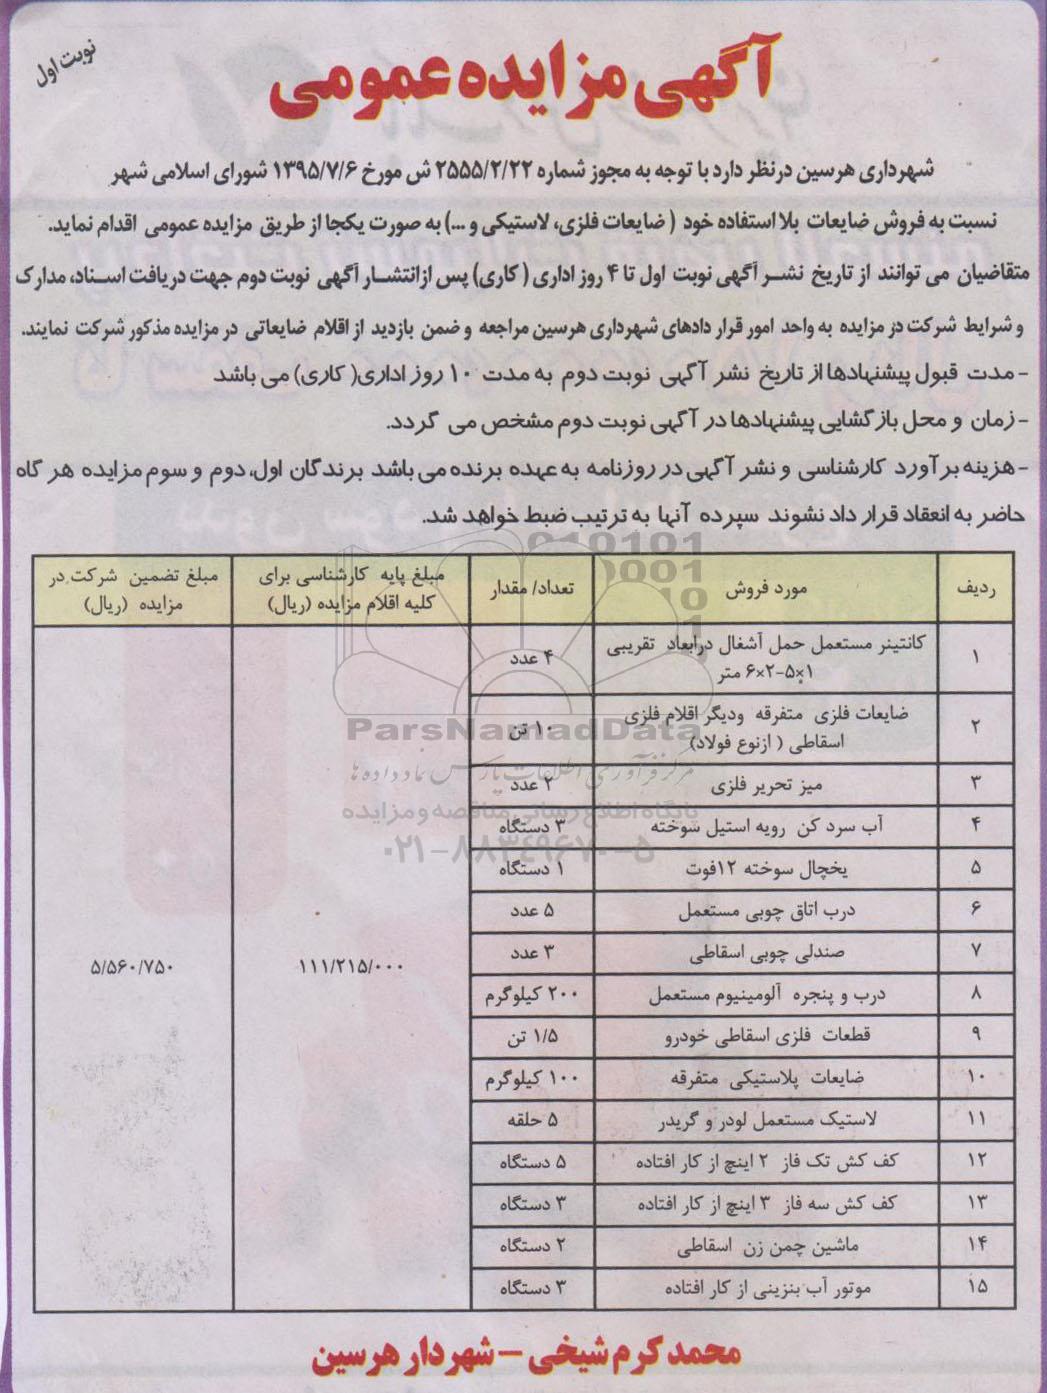 نوبت اول
آگهی مزایده عمومی
شهرداری هرسین درنظر دارد با توجه به مجوز شماره ۲۵۵۵/۲/۲۲ ش مورخ ۱۳۹۵/۷/۶ شورای اسلامی شهر
نسبت به فروش ضایعات بلا استفاده خود ( ضایعات فلزی، لاستیکی و ...) به صورت یکجا از طریق مزایده عمومی اقدام نماید.
متقاضیان می توانند از تاریخ نشر آگهی نوبت اول تا ۴ روز اداری ( کاری) پس ازانتشار آگهی نوبت دوم جهت دریافت اسناد، مدارک
و شرایط شرکت در مزایده به واحد امور قرار دادهای شهرداری هرسین مراجعه و ضمن بازدید از اقلام ضایعاتی در مزایده مذکور شرکت نمایند.
- مدت قبول پیشنهادها از تاریخ نشر آگهی نوبت دوم به مدت ۱۰ روز اداری( کاری) می باشد
- زمان و محل بازگشایی پیشنهادها در آگهی نوبت دوم مشخص می گردد.
- هزینه برآورد کارشناسی و نشر آگهی در روزنامه به عهده برنده می باشد برندگان اول، دوم و سوم مزایده هر گاه
حاضر به انعقاد قرار داد نشوند سپرده آنها به ترتیب ضبط خواهد شد.
ردیف مورد فروش تعداد/ مقدار مبلغ پایه کارشناسی برای کلیه اقلام مزایده (ریال) مبلغ تضمین شرکت در مزایده (ریال)
۱ کانتینر مستعمل حمل آشغال درابعاد تقریبی ۴ عدد
۱×۵-۲×۶ متر
۲ ضایعات فلزی متفرقه ودیگر اقلام فلزی ۱۰ تن
اسقاطی ( ازنوع فولاد)
۳ میز تحریر فلزی ۲ عدد
۴ آب سرد کن رویه استیل سوخته ۳ دستگاه
۵ یخچال سوخته ۱۲فوت ۱ دستگاه
۶ درب اتاق چوبی مستعمل ۵ عدد
۷ صندلی چوبی اسقاطی ۳ عدد
۱۱۱/۲۱۵/۰۰۰ ۵/۵۶۰/۷۵۰
۸ درب و پنجره آلومینیوم مستعمل ۲۰۰ کیلوگرم
۹ قطعات فلزی اسقاطی خودرو ۱/۵ تن
۱۰ ضایعات پلاستیکی متفرقه ۱۰۰ کیلوگرم
۱۱ لاستیک مستعمل لودر و گریدر ۵ حلقه
۱۲ کف کش تک فاز ۲ اینچ از کار افتاده ۵ دستگاه
۱۳ کف کش سه فاز ۳ اینچ از کار افتاده ۳ دستگاه
۱۴ ماشین چمن زن اسقاطی ۲ دستگاه
۱۵ موتور آب بنزینی از کار افتاده ۳ دستگاه
محمد کرم شیخی - شهردار هرسین
ParsNamadData
مرکز فرآوری اطلاعات پارس نماد داده ها
پایگاه اطلاع رسانی مناقصه و مزایده
۰۲۱-۸۸۳۴۹۶۷۰-۵